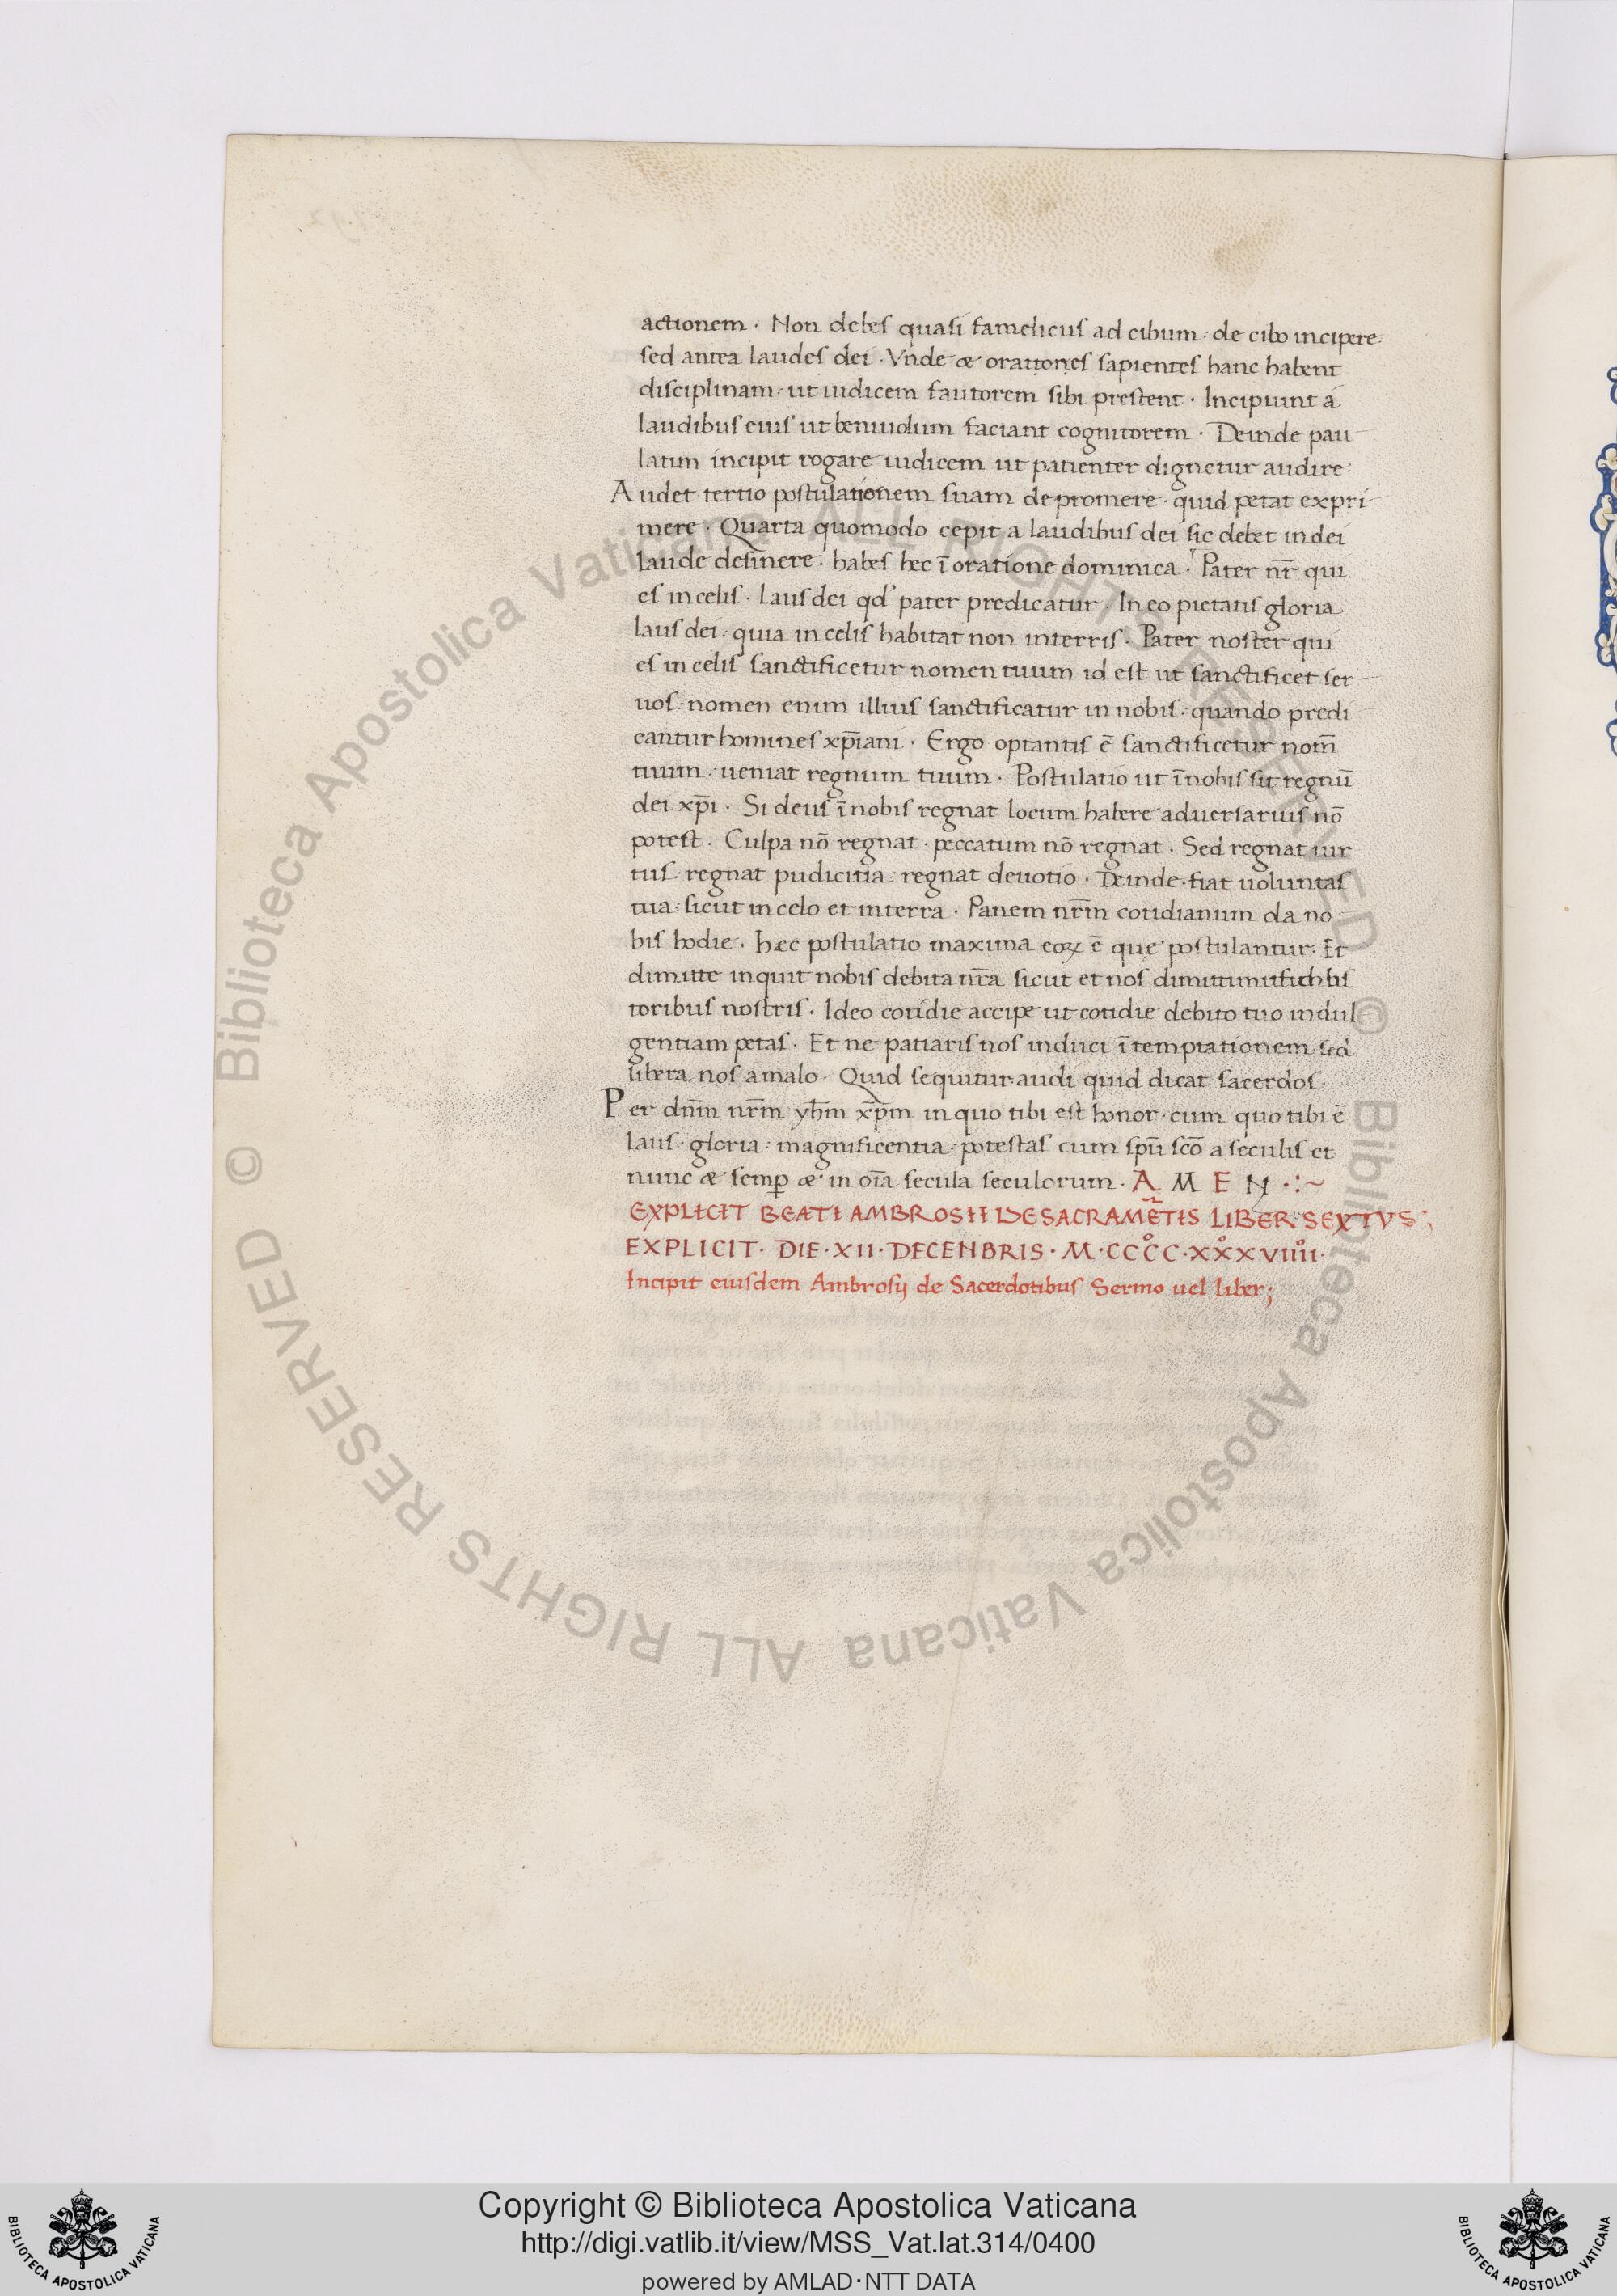 actionem · Non debes quasi famelicus ad cibum · de cibo incipere ·
sed antea laudes dei · Vnde æ orationes sapientes hanc habent
disciplinam · ut iudicem fautorem sibi prestent · Incipiunt á
laudibus eius ut beniuolum faciant cognitorem · Deinde pau
latim incipit rogare iudicem ut patienter dignetur audire :
Audet tertio postulationem suam depromere · quid petat expri
mere · Quarta quomodo cepit a laudibus dei sic debet in dei
laude desinere · habes hec ī oratione dominica · Pater nr̄ qui
es in celis · Laus dei qd' pater predicatur · In eo pietatis gloria
laus dei · quia in celis habitat non in terris · Pater noster qui
es in celis sanctificetur nomen tuum id est ut sanctificet ser
uos · nomen enim illius sanctificatur in nobis · quando predi
cantur homines xp̄iani · Ergo optantis ē sanctificetur nom̄
tuum · ueniat regnum tuum · Postulatio ut ī nobis sit regnū
dei xp̄i · Si deus ī nobis regnat locum habere aduersarius nō
potest · Culpa nō regnat · peccatum nō regnat · Sed regnat uir
tus · regnat pudicitia · regnat deuotio · Deinde · fiat uoluntas
tua · sicut in celo et in terra · Panem nr̄m cotidianum da no
bis hodie · hæc postulatio maxima eoꝝ ē que postulantur · Et
dimitte inquit nobis debita nr̄a sicut et nos dimittimus
toribus nostris · Ideo cotidie accipe ut cotidie debito tuo indul
gentiam petas · Et ne patiaris nos induci ī temptationem sed
libera nos a malo · Quid sequitur audi quid dicat sacerdos ·
Per dn̄m nr̄m yhm̄ xp̄m in quo tibi est honor · cum quo tibi ē
laus · gloria · magnificentia · potestas cum spū scō a seculis et
nunc æ semp̱ æ in oīa secula seculorum · A M E N ·:~
EXPLICIT BEATI AMBROSII DE SACRAMĒTIS LIBER SEXTVS ;
EXPLICIT · DIE · XII · DECENBRIS · M · CCCC° · XXX°VIIII° ·
Incipit eiusdem Ambrosij de Sacerdotibus Sermo uel liber ;
© Biblioteca Apostolica Vaticana ALL RIGHTS RESERVED
© Biblioteca Apostolica Vaticana ALL RIGHTS RESERVED
Copyright © Biblioteca Apostolica Vaticana
http://digi.vatlib.it/view/MSS_Vat.lat.314/0400
powered by AMLAD·NTT DATA
BIBLIOTECA APOSTOLICA VATICANA
BIBLIOTECA APOSTOLICA VATICANA